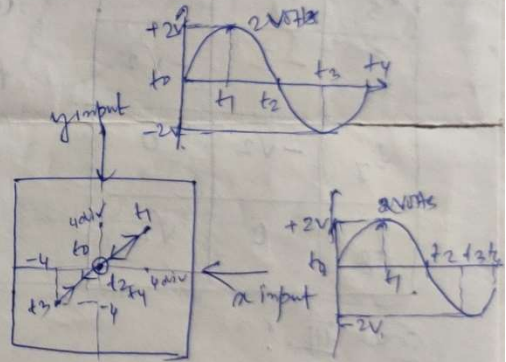 +2V
2 Volts
t0
t1
t2
t3
t4
-2V
y input
4div
t1
t0
-4
t2
t4
4div
t3
-4
x input
+2V
2Volts
t0
t1
t2
t3
-2V